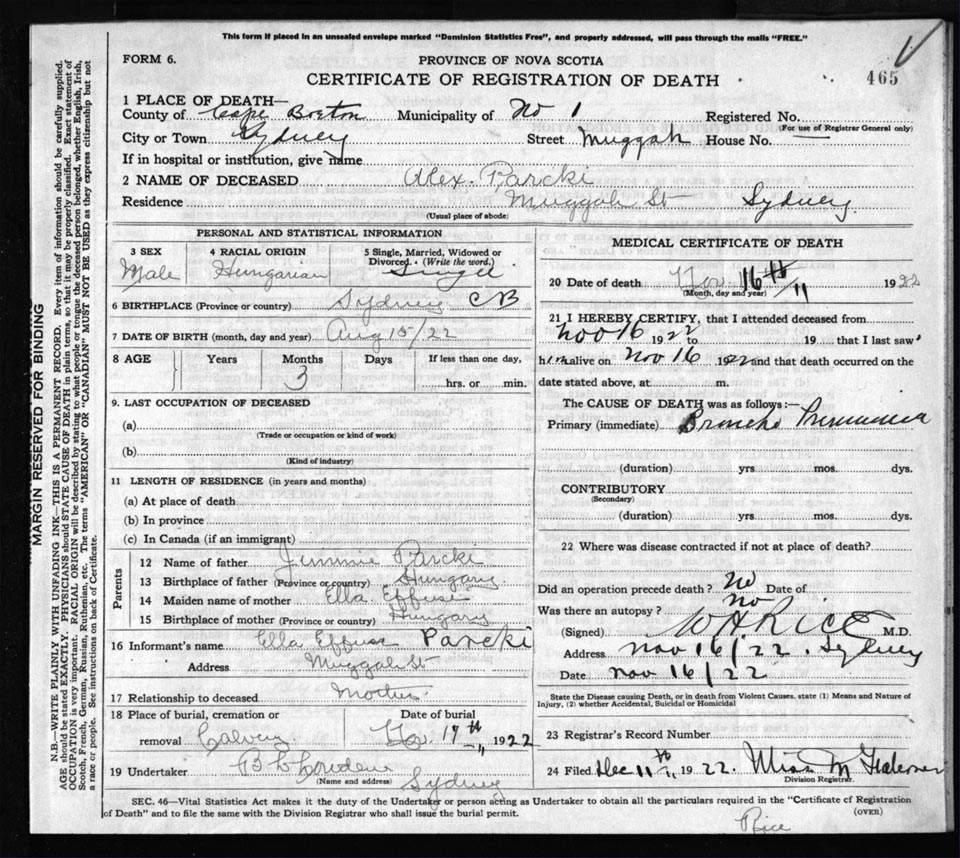 This form if placed in an unsealed envelope marked "Dominion Statistics Free", and properly addressed, will pass through the mails "FREE."
FORM 6.
PROVINCE OF NOVA SCOTIA
CERTIFICATE OF REGISTRATION OF DEATH
465
1 PLACE OF DEATH—
County of Cape Breton Municipality of No 1 Registered No.
(For use of Registrar General only)
City or Town Sydney Street Muggah House No.
If in hospital or institution, give name
2 NAME OF DECEASED Alex. Parcki
Residence Muggah St Sydney
(Usual place of abode)
PERSONAL AND STATISTICAL INFORMATION
3 SEX
Male
4 RACIAL ORIGIN
Hungarian
5 Single, Married, Widowed or
Divorced. (Write the word.)
Singel
6 BIRTHPLACE (Province or country) Sydney CB
7 DATE OF BIRTH (month, day and year) Aug 15/22
8 AGE Years Months Days If less than one day,
3 hrs. or min.
9. LAST OCCUPATION OF DECEASED
(a)
(Trade or occupation or kind of work)
(b)
(Kind of industry)
11 LENGTH OF RESIDENCE (in years and months)
(a) At place of death
(b) In province
(c) In Canada (if an immigrant)
Parents
12 Name of father Jimmie Parcki
13 Birthplace of father (Province or country) Hungary
14 Maiden name of mother Ella Effusi
15 Birthplace of mother (Province or country) Hungary
16 Informant's name Ella Effusi Parcki
Address Muggah St
17 Relationship to deceased Mother
18 Place of burial, cremation or Date of burial
removal Calvery 17th 11 1922
19 Undertaker
(Name and address) Sydney
MEDICAL CERTIFICATE OF DEATH
20 Date of death Nov. 16th/11 1922
(Month, day and year)
21 I HEREBY CERTIFY, that I attended deceased from
Nov 16 1922 to 19 that I last saw
him alive on Nov 16 1922 and that death occurred on the
date stated above, at m.
The CAUSE OF DEATH was as follows:—
Primary (immediate) Broncho Pneumonia
(duration) yrs. mos. dys.
CONTRIBUTORY
(Secondary)
(duration) yrs. mos. dys.
22 Where was disease contracted if not at place of death?
Did an operation precede death? No Date of
Was there an autopsy? No
(Signed) W A Rice M.D.
Address Nov 16/22. Sydney
Date Nov 16/22
State the Disease causing Death, or in death from Violent Causes, state (1) Means and Nature of
Injury, (2) whether Accidental, Suicidal or Homicidal
23 Registrar's Record Number
24 Filed Dec 11th 1922.
Division Registrar.
SEC. 46—Vital Statistics Act makes it the duty of the Undertaker or person acting as Undertaker to obtain all the particulars required in the "Certificate of Registration
of Death" and to file the same with the Division Registrar who shall issue the burial permit.
(OVER)
Rice
MARGIN RESERVED FOR BINDING
N.B.—WRITE PLAINLY WITH UNFADING INK—THIS IS A PERMANENT RECORD. Every item of information should be carefully supplied.
AGE should be stated EXACTLY. PHYSICIANS should STATE CAUSE OF DEATH in plain terms, so that it may be properly classified. Exact statement of
OCCUPATION is very important. RACIAL ORIGIN will be described by stating to what people or tongue the deceased person belonged, whether English, Irish,
Scotch, French, German, Russian, Ruthenian, etc. The terms "AMERICAN" OR "CANADIAN" MUST NOT BE USED as they express citizenship but not
a race or people. See instructions on back of Certificate.